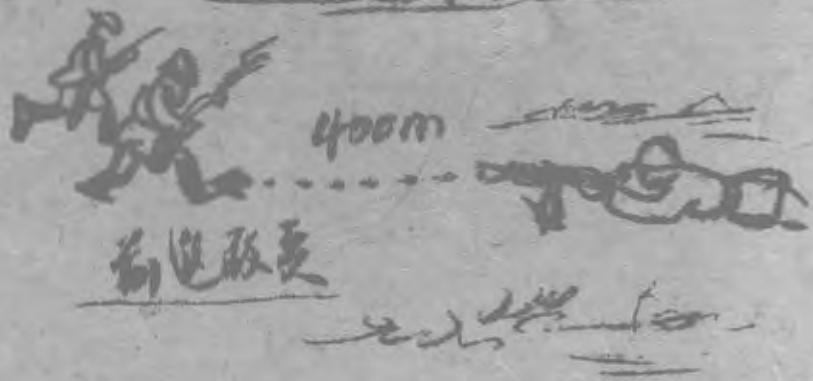 400m
前進敵兵